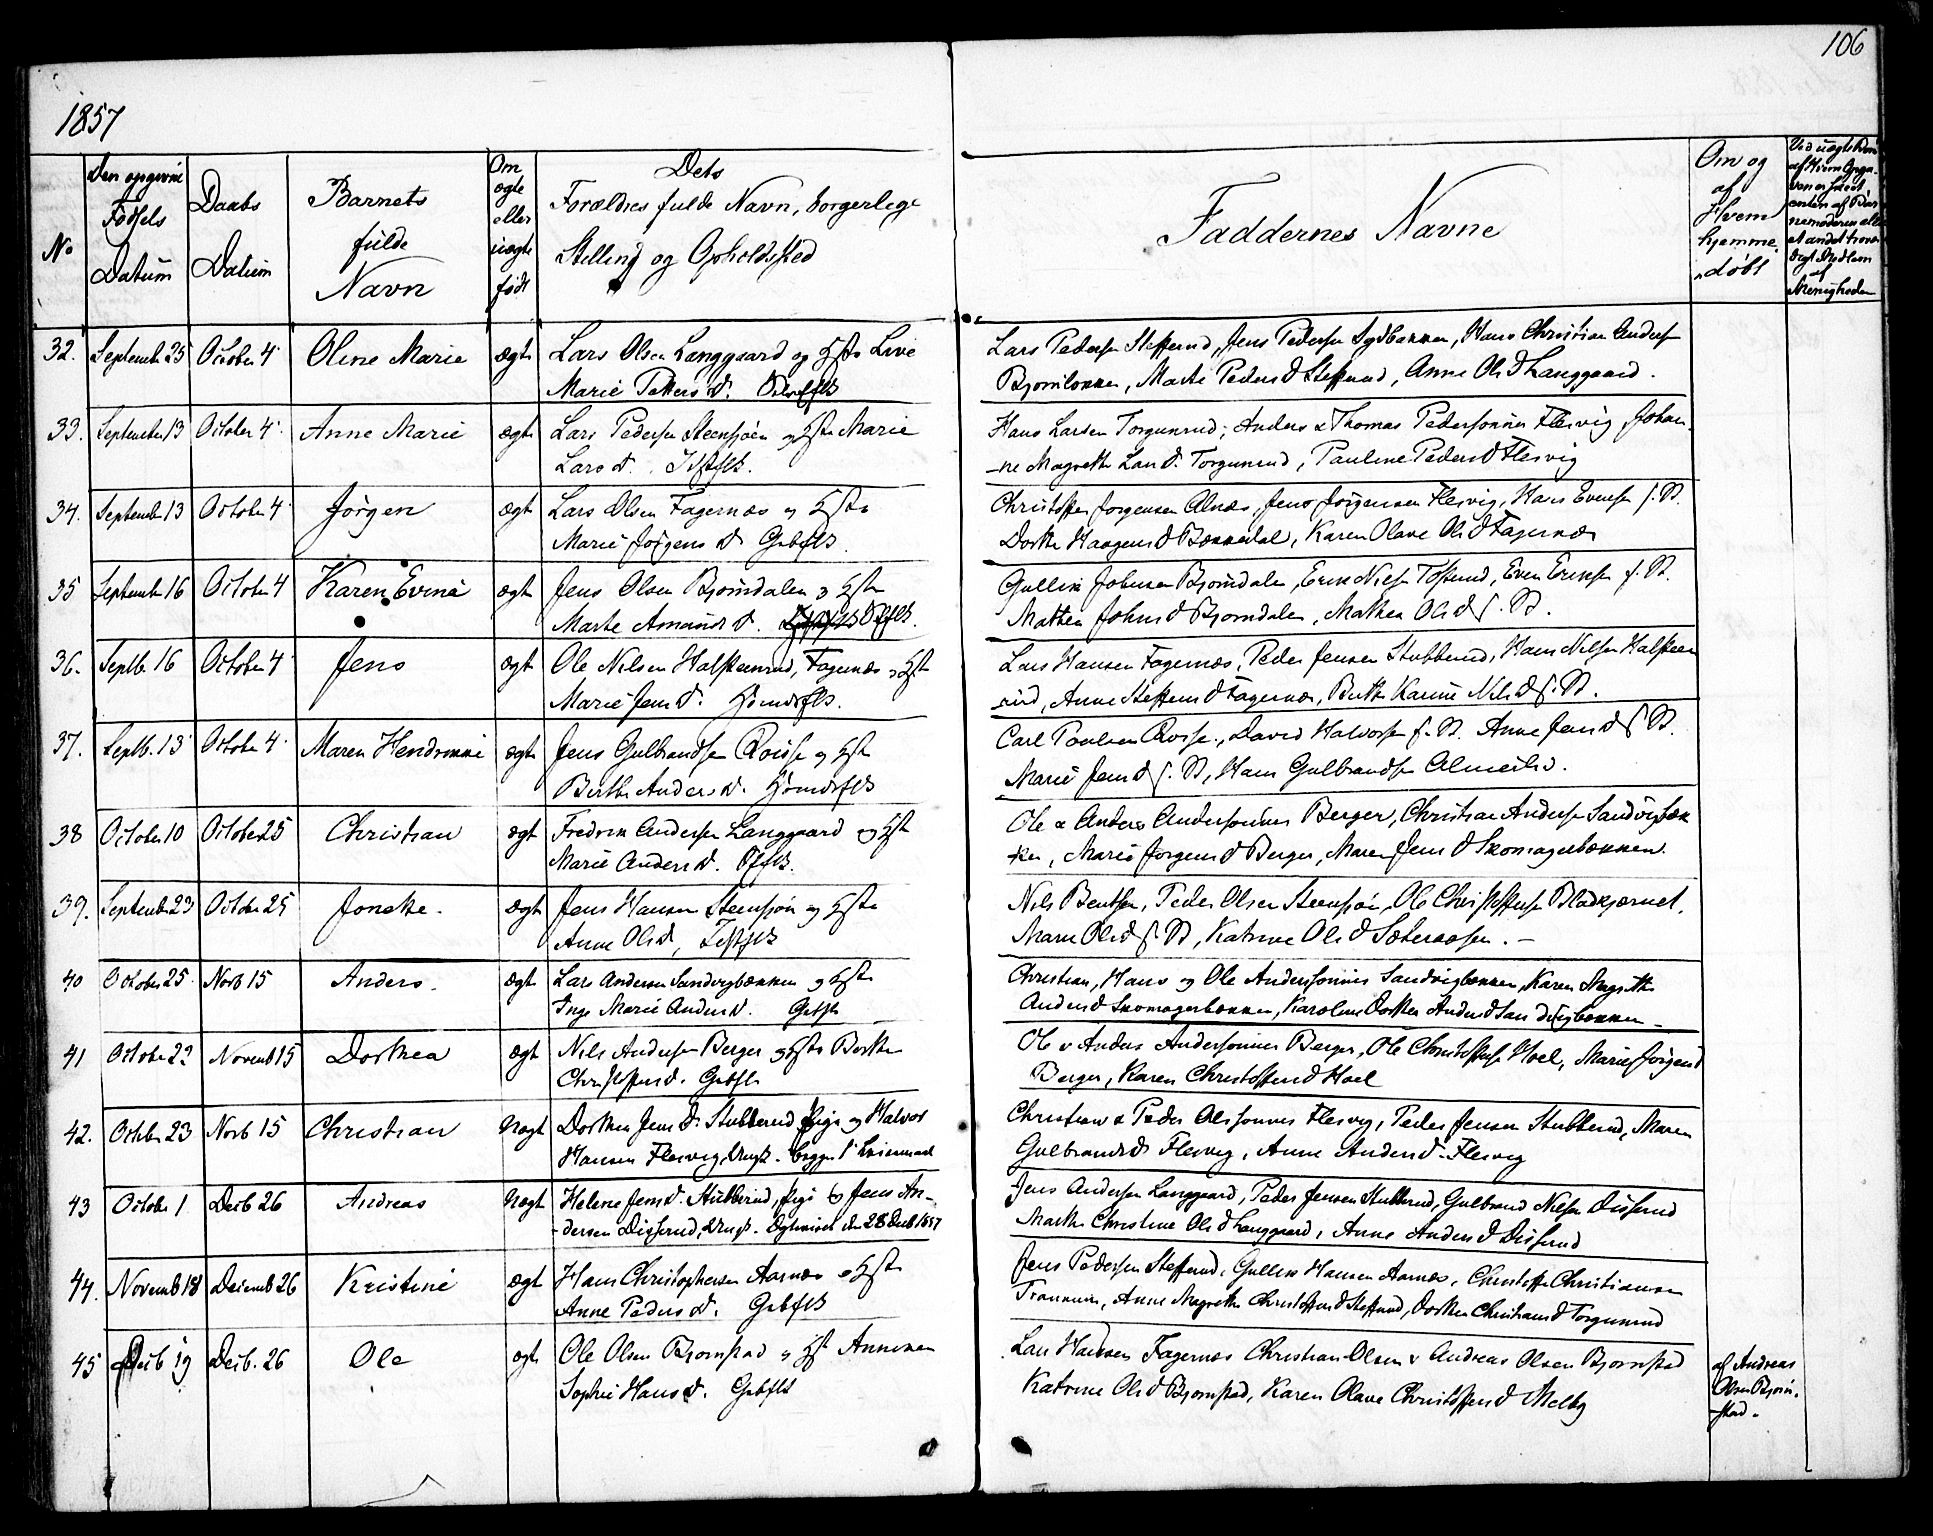 106
1857
No
Den opgivne Fødsels Datum
Daabs Datum
Barnets fulde Navn
Om ægte eller uægte født
Dets Forældres fulde Navn, borgerlige Stilling og Opholdsted
Faddernes Navne
Om og af Hvem hjemmedøbt
32. September 25 October 4 Oline Marie ægte Lars Olsen Langgaard og Hstr Live
Marie Petters D.
Lars Pedersen Steffenrud, Jens Pedersen Sydbakken, Hans Christian Andersen
Bjørnløkken, Marthe Peders D Steffenrud, Anne Ols D Langgaard.
33. September 13 October 4 Anne Marie ægte Lars Pedersen Steensjøen og Hstr Marie
Lars D.
Hans Larsen Torgunrud, Anders & Thomas Pedersønner Flesvig, Johan-
-ne Magrethe Lars D. Torgunrud, Pauline Peders D Flesvig
34. September 13 October 4 Jørgen ægte Lars Olsen Fagernæs og Hstr
Marie Jørgens D Gbflk.
Christoffer Jørgensen Alnæs, Jens Jørgensen Flesvig, Hans Evensen s. St.
Dorthe Haagens D Bækkedal, Karen Olave Ols D Fagernæs
35 September 16 October 4 Karen Evine ægte Jens Olsen Bjørndalen og Hstr
Marte Amunds D.
Gullik Johnsen Bjørndalen, Erik Nilsen Tosterud, Even Eriksen s. St.
Mathea Johns D Bjørndalen, Mathea Ols D s. St.
36. Septb. 16 October 4 Jens ægte Ole Nilsen Halsteinrud, Fagernæs og Hstr
Marie Jens D.
Lars Hansen Fagernæs, Peder Jensen Stubberud, Hans Nilsen Halsteen
rud, Anne Steffens D Fagernæs, Berthe Karine Nils D s. St.
37. Septb. 13 October 4 Maren Hendrikke ægte Jens Gulbrandsen Roisse og Hstr
Berthe Anders D.
Carl Poulsen Rosse, David Halvorsen s. St. Anne Jens D s St.
Marie Jens D s. St, Hans Gulbrandsen
38 October 10 October 25 Christian ægte Fredrik Andersen Langgaard og Hstr
Marie Anders D.
Ole & Anders Andersønner Berger, Christian Andersen Sandvigbæk
ken, Marie Jørgens D Berger, Maren Jens D Skomagerbakken.
39. September 23 October 25 Jonette. ægte Jens Hansen Steensjøen og Hstr
Anne Ols D,
Nils Bentsen, Peder Olsen Steensjøen, Ole Christoffersen Bladkjærnet,
Maren Ols D s. St, Katrine Ols D Sæteraasen. -
40 October 25 Novb 15 Anders. ægte Lars Andersen Sandvigbækken og Hstr
Inge Marie Anders D. Gbflk
Christian, Hans og Ole Andersønner Sandvigbækken, Karen Magrethe
Anders D Skomagerbakken, Karoline Dorthea Anders D Sandvigbækken -
41 October 23 Novemb 15 Dorthea ægte Nils Andersen Berger og Hstr Berthe
Christoffers D. Gbflk
Ole & Anders Andersønner Berger, Ole Christoffersen Hoel, Marie Jørgens D
Berger, Karen Christoffers D Hoel
42. October 23 Novb 15 Christian Uægt Dorthea Jens D. Stubberud Pige og Halvor
Hansen Flesvig, Ungk. begge i
Christian & Peder Olssønner Flesvig, Peder Jensen Stubberud, Maren
Gulbrands D Flesvig, Anne Anders D. Flesvig
43 October 1 Decb 26 Andreas Uægt Helene Jens D. Stubberud, Pige & Jens An-
-dersen Disserud, Ungk. Ægteviet den 28 Decb 1857
Jens Andersen Langgaard, Peder Jensen Stubberud, Gulbrand Nilsen Disserud
Marthe Christine Ols D Langgaard, Anne Anders D Disserud
44. Novemb 18 Decemb 26 Kristine ægte Hans Christophersen Aarnæs & Hstr
Anne Peders D. Gbflk
Jens Pedersen Steffenrud, Gullik Hansen Aarnæs, Christoffer Christiansen
Anne Magrethe Christoffers D Steffenrud, Dorthea Christians D Torgunrud
45 Decb 19 Decb. 26 Ole ægte Ole Olsen Bjørnstad og Hstr Anniken
Sophie Hans D. Gbflk
Lars Hansen Fagernæs Christian Olsen & Andreas Olsen Bjørnstad
Katrine Ols D Bjørnstad, Karen Olave Christoffers D Melby
af Andreas
Olsen Bjørn-
-stad.